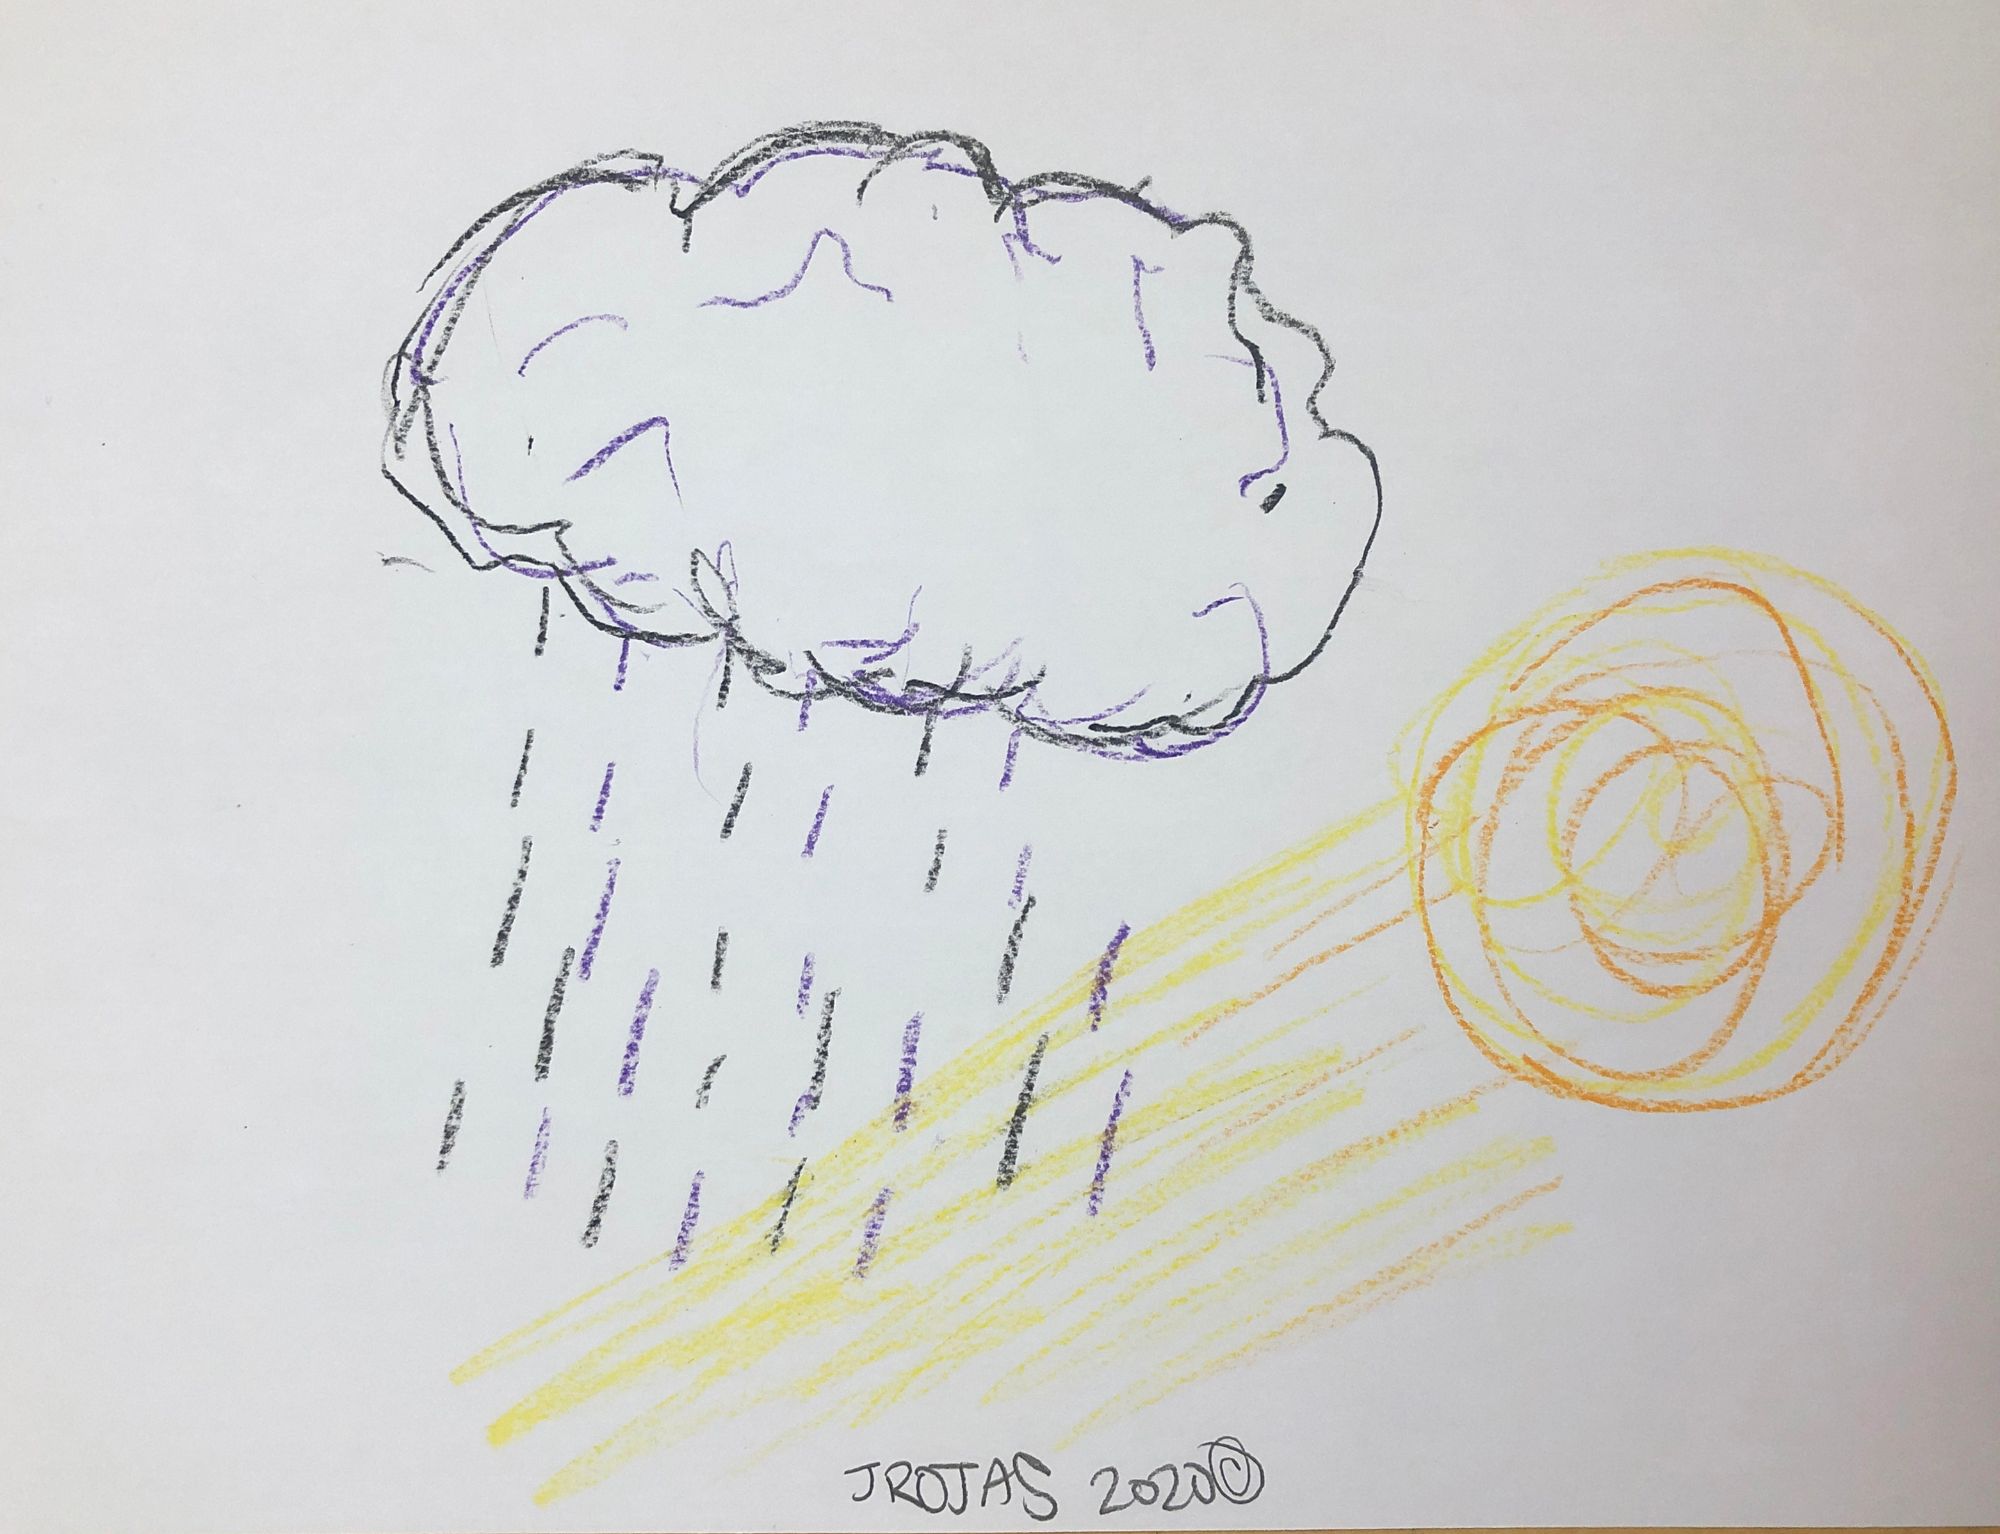 JROJAS 2020©